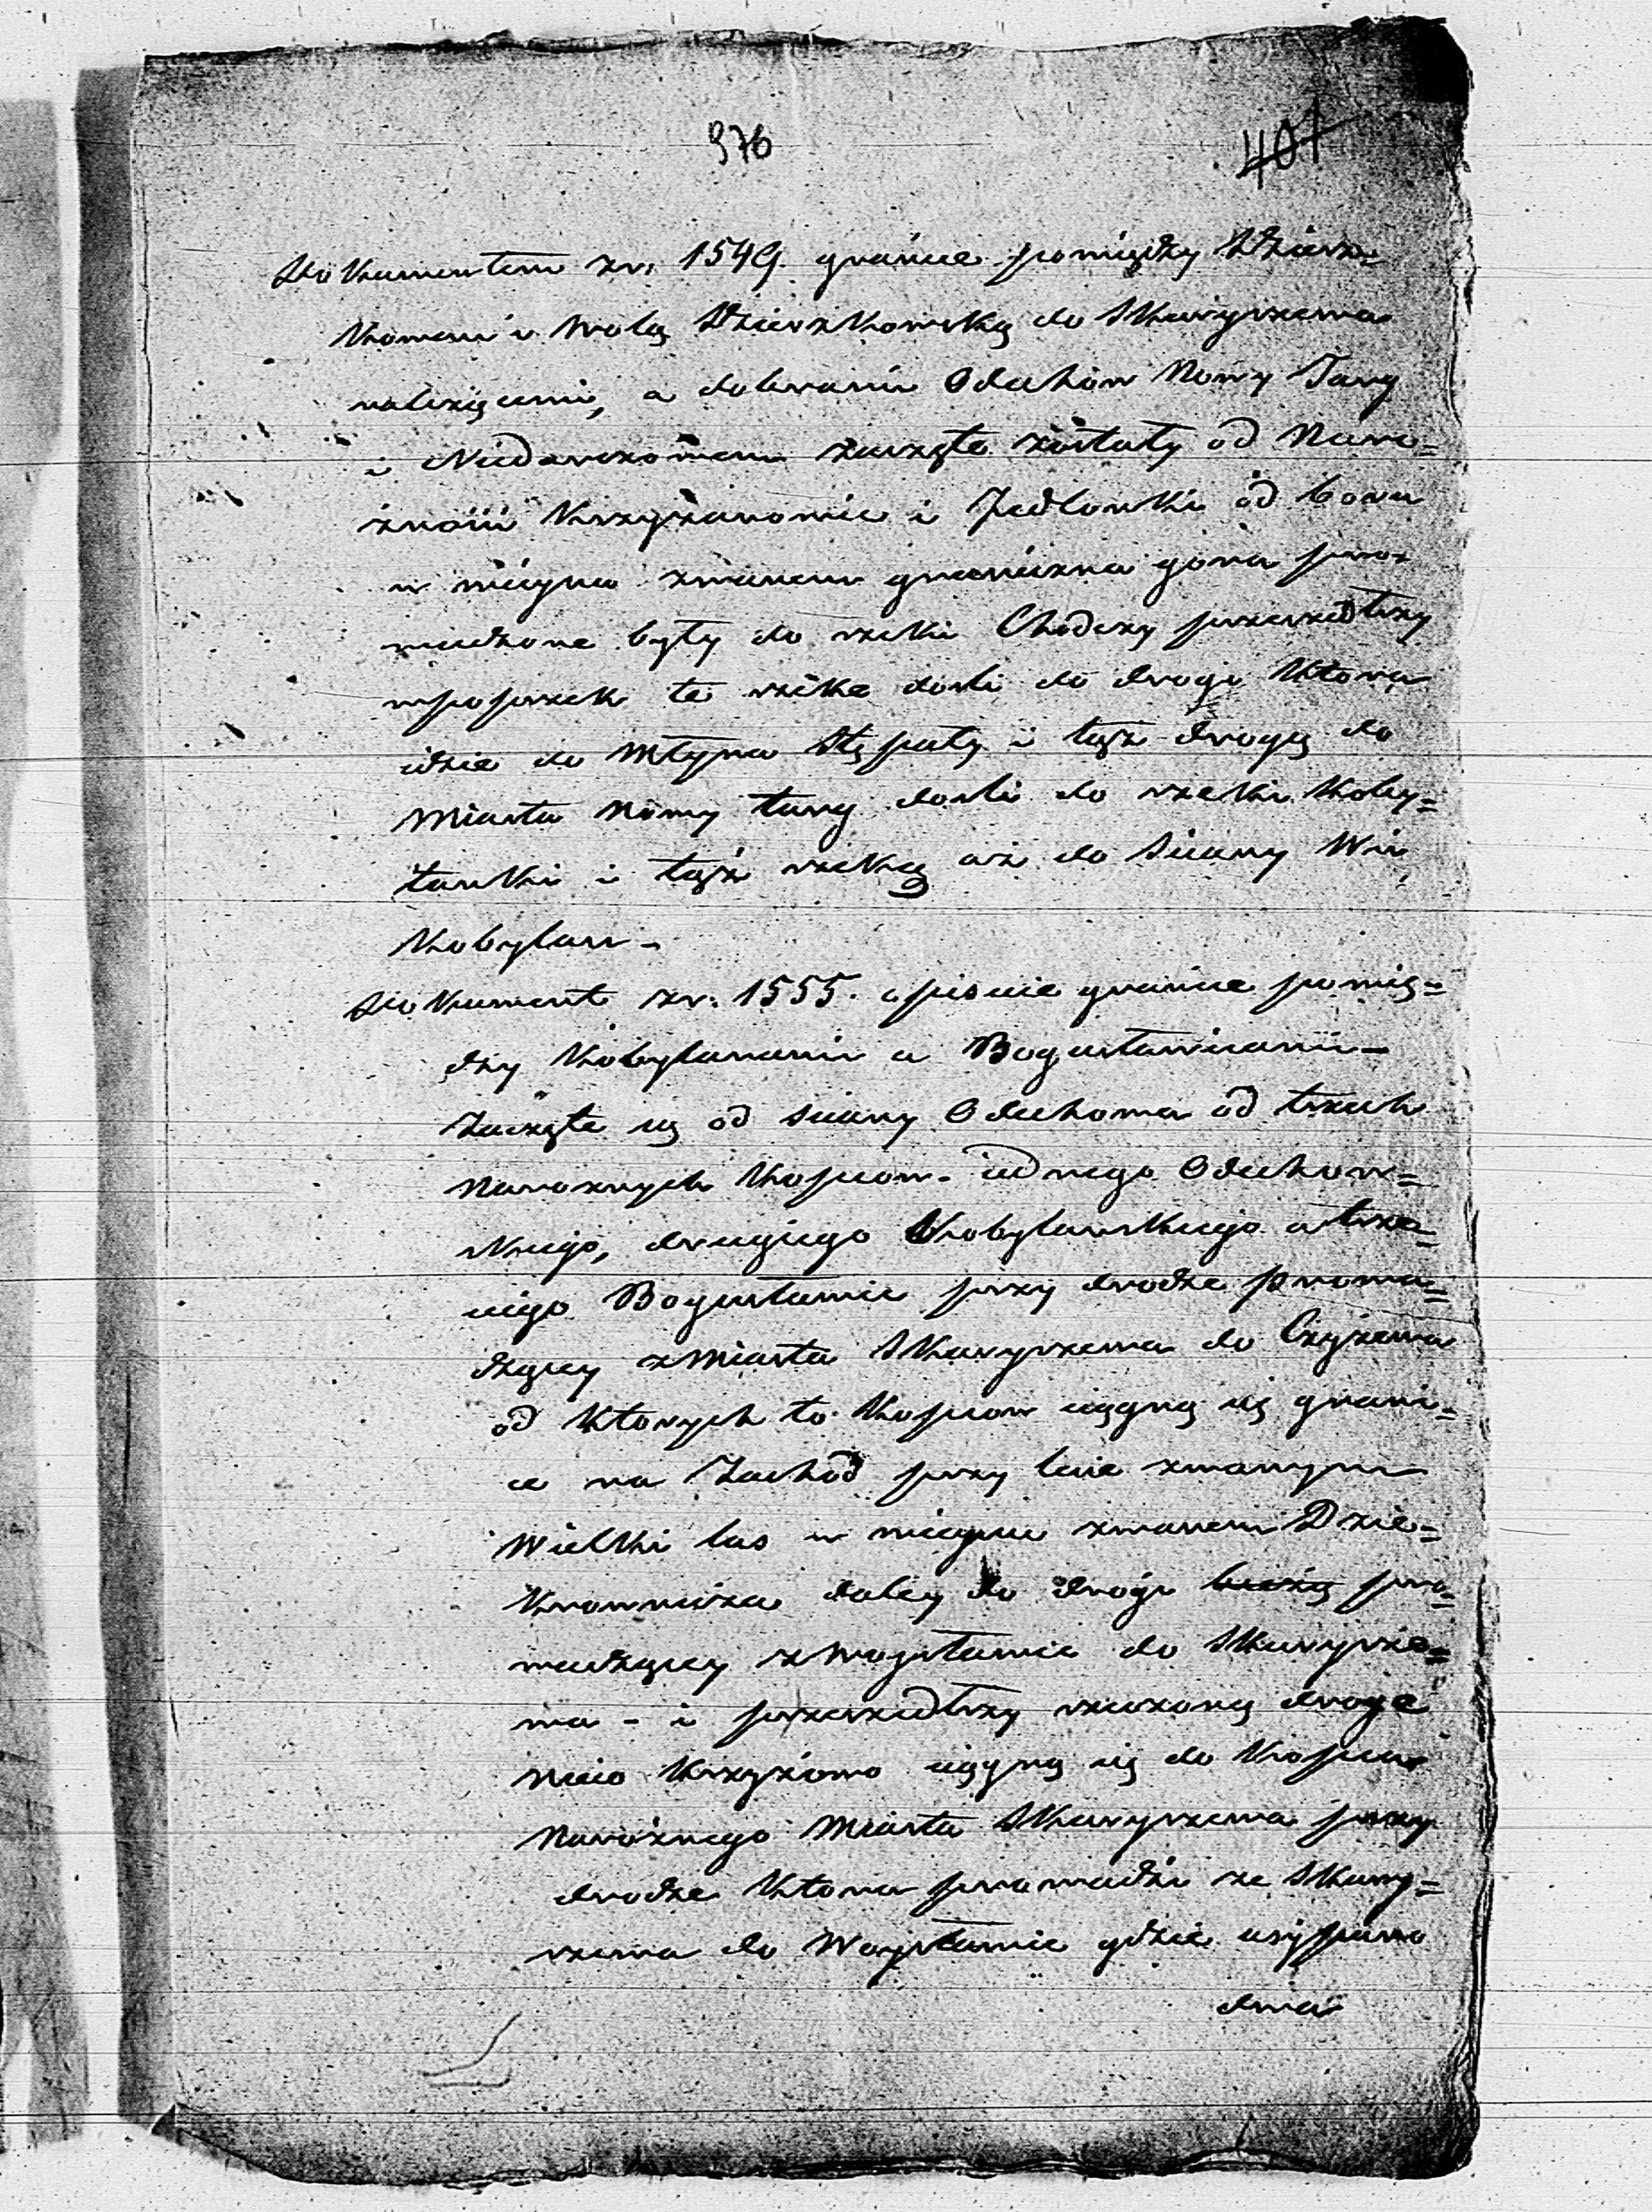 376
401
Dokumentem z r. 1549. granice pomiędzy Dzierz=
kowem i Wolą Dzierzkowską do Skaryszewa
należącemi, a dobrami Odechów Nowy Targ
i Niedarczowem zaczęte zostały od Naro=
żności Krzyżanowic i Jedlonki od boru
w miejscu zwanem graniczna góra pro=
wadzone były do rzeki Chodczy przeszedłszy
wpoprzek tę rzekę doszli do drogi która
idzie do Młyna Stępały i tąż drogą do
Miasta Nowy targ doszli do rzeki Koby=
lanki i tąż rzeką aż do Ściany Wsi
Kobylan -
Dokument z r. 1555. opisuie granice pomię=
dzy Kobylanami a Bogusławicami -
Zaczęte są od ściany Odechowa od trzech
Narożnych Kopców - iednego Odechow=
skiego, drugiego Kobylańskiego a trze=
ciego Bogusławic przy drodze prowa=
dzącey z Miasta Skaryszewa do Czyżewa
od których to Kopców ciągną się grani=
ce na Zachód przy lesie zwanym
Wielki las w miejscu zwanem Dzie=
krownisza daley do drogi bieżą pro=
wadzącey z Wogusławic do Skarysze=
wa - i przeszedłszy rzeczoną drogę
nieco Krzyżowo ciągną się do Kopca
Narożnego Miasta Skaryszewa przy
drodze która prowadzi ze Skary=
szewa do Wogusławic gdzie usypano
dwa